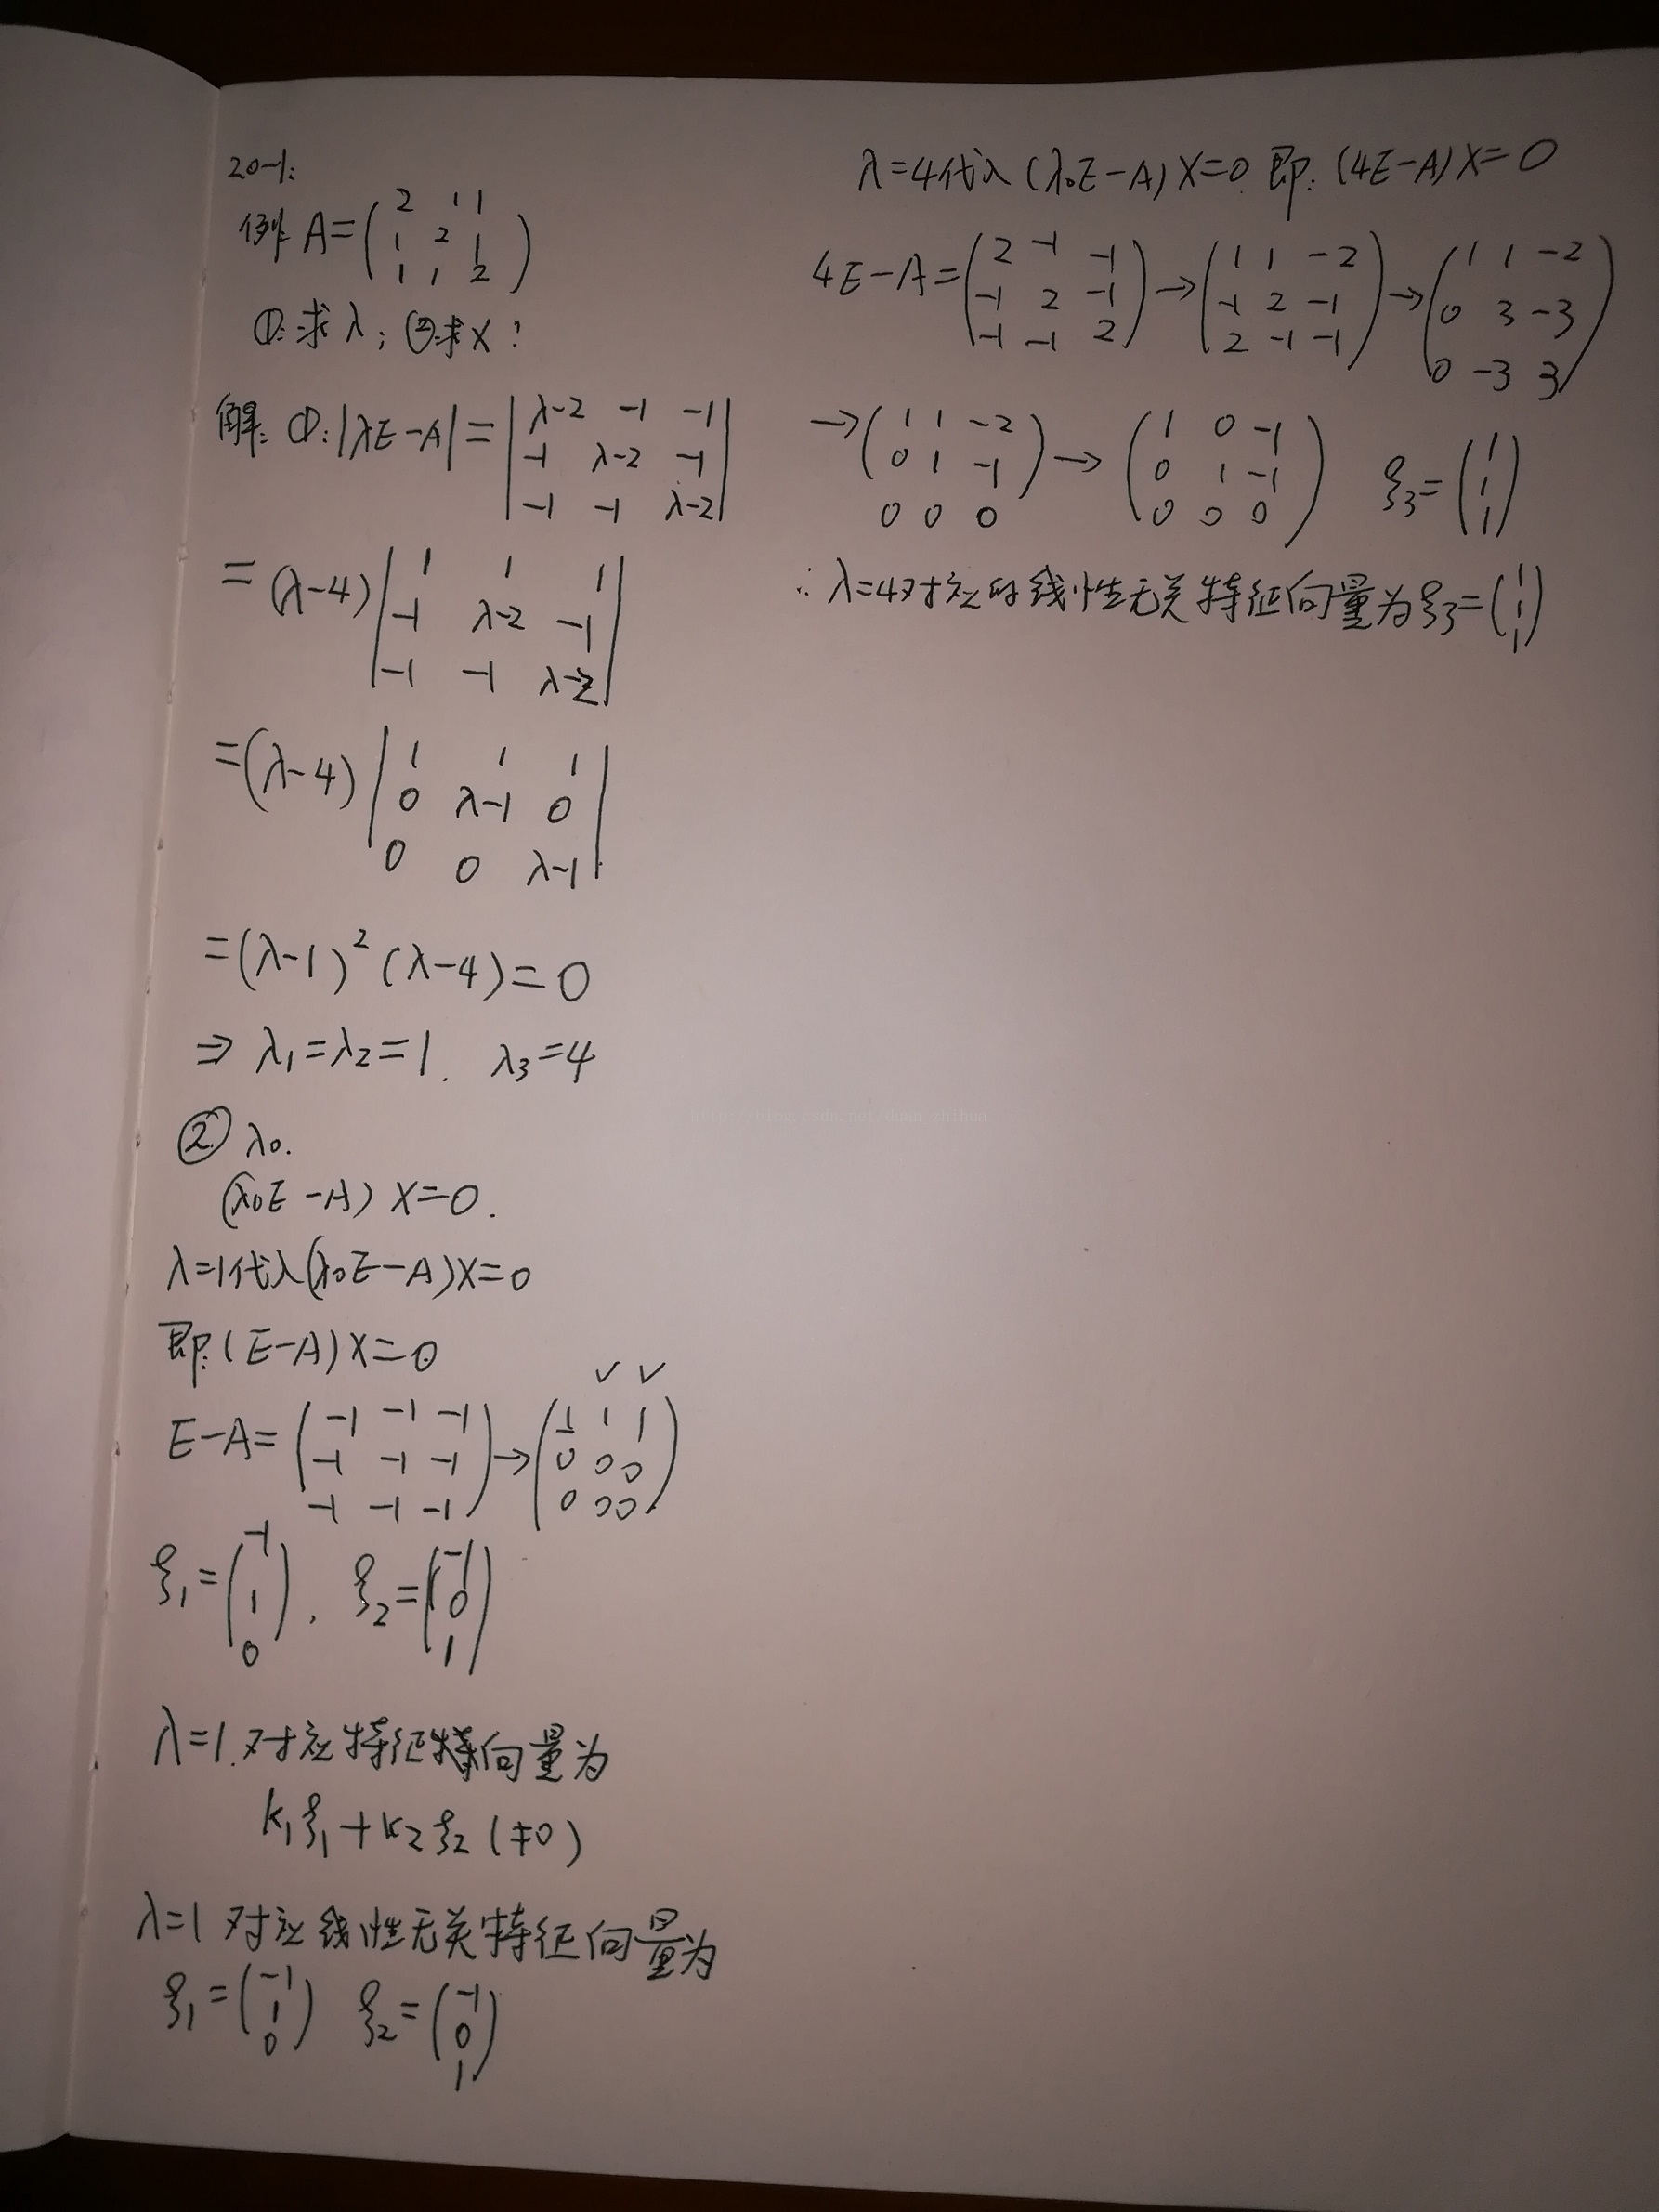 20-1:
例: A=(2 1 1
1 2 1
1 1 2)
①:求λ; ②:求X:
解: ①:|λE-A|=|λ-2 -1 -1
-1 λ-2 -1
-1 -1 λ-2|
=(λ-4)|1 1 1
-1 λ-2 -1
-1 -1 λ-2|
=(λ-4)|1 1 1
0 λ-1 0
0 0 λ-1|
=(λ-1)²(λ-4)=0
⇒ λ₁=λ₂=1. λ₃=4
② λ₀.
(λ₀E-A) X=0.
λ=1代入(λ₀E-A)X=0
即:(E-A)X=0
✓ ✓
E-A=(-1 -1 -1
-1 -1 -1
-1 -1 -1)→(1 1 1
0 0 0
0 0 0)
ξ₁=(-1
1
0), ξ₂=(-1
0
1)
λ=1.对应特征向量为
k₁ξ₁+k₂ξ₂(≠0)
λ=1对应线性无关特征向量为
ξ₁=(-1
1
0) ξ₂=(-1
0
1)
λ=4代入(λ₀E-A)X=0.即:(4E-A)X=0
4E-A=(2 -1 -1
-1 2 -1
-1 -1 2)→(1 1 -2
-1 2 -1
2 -1 -1)→(1 1 -2
0 3 -3
0 -3 3)
→(1 1 -2
0 1 -1
0 0 0)→(1 0 -1
0 1 -1
0 0 0) ξ₃=(1
1
1)
∴λ=4对应的线性无关特征向量为ξ₃=(1
1
1)